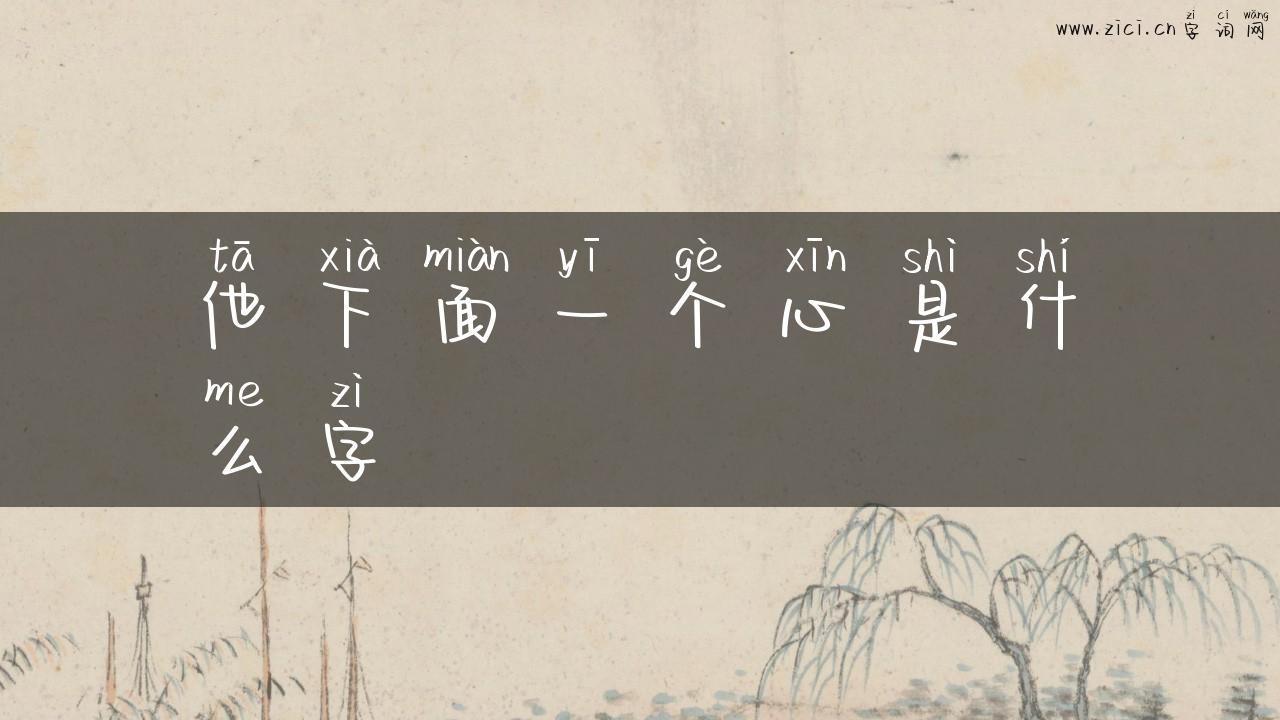 zì cí wǎng
www.zici.cn字词网
tā xià miàn yī gè xīn shì shí
他下面一个心是什
me zì
么字